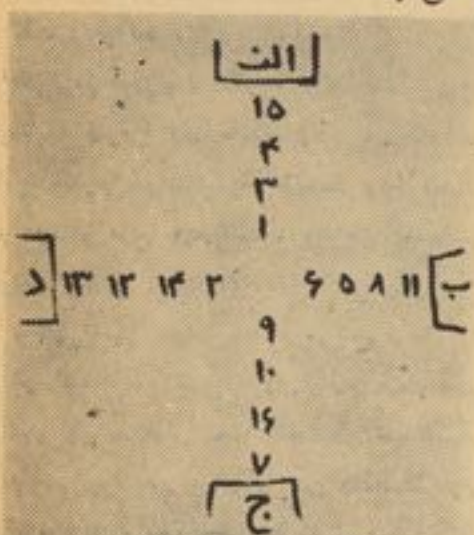 الف
۱۵
۴
۳
۱
د ۱۳ ۱۲ ۱۴ ۲ ۶ ۵ ۸ ۱۱ ب
۹
۱۰
۱۶
۷
ج